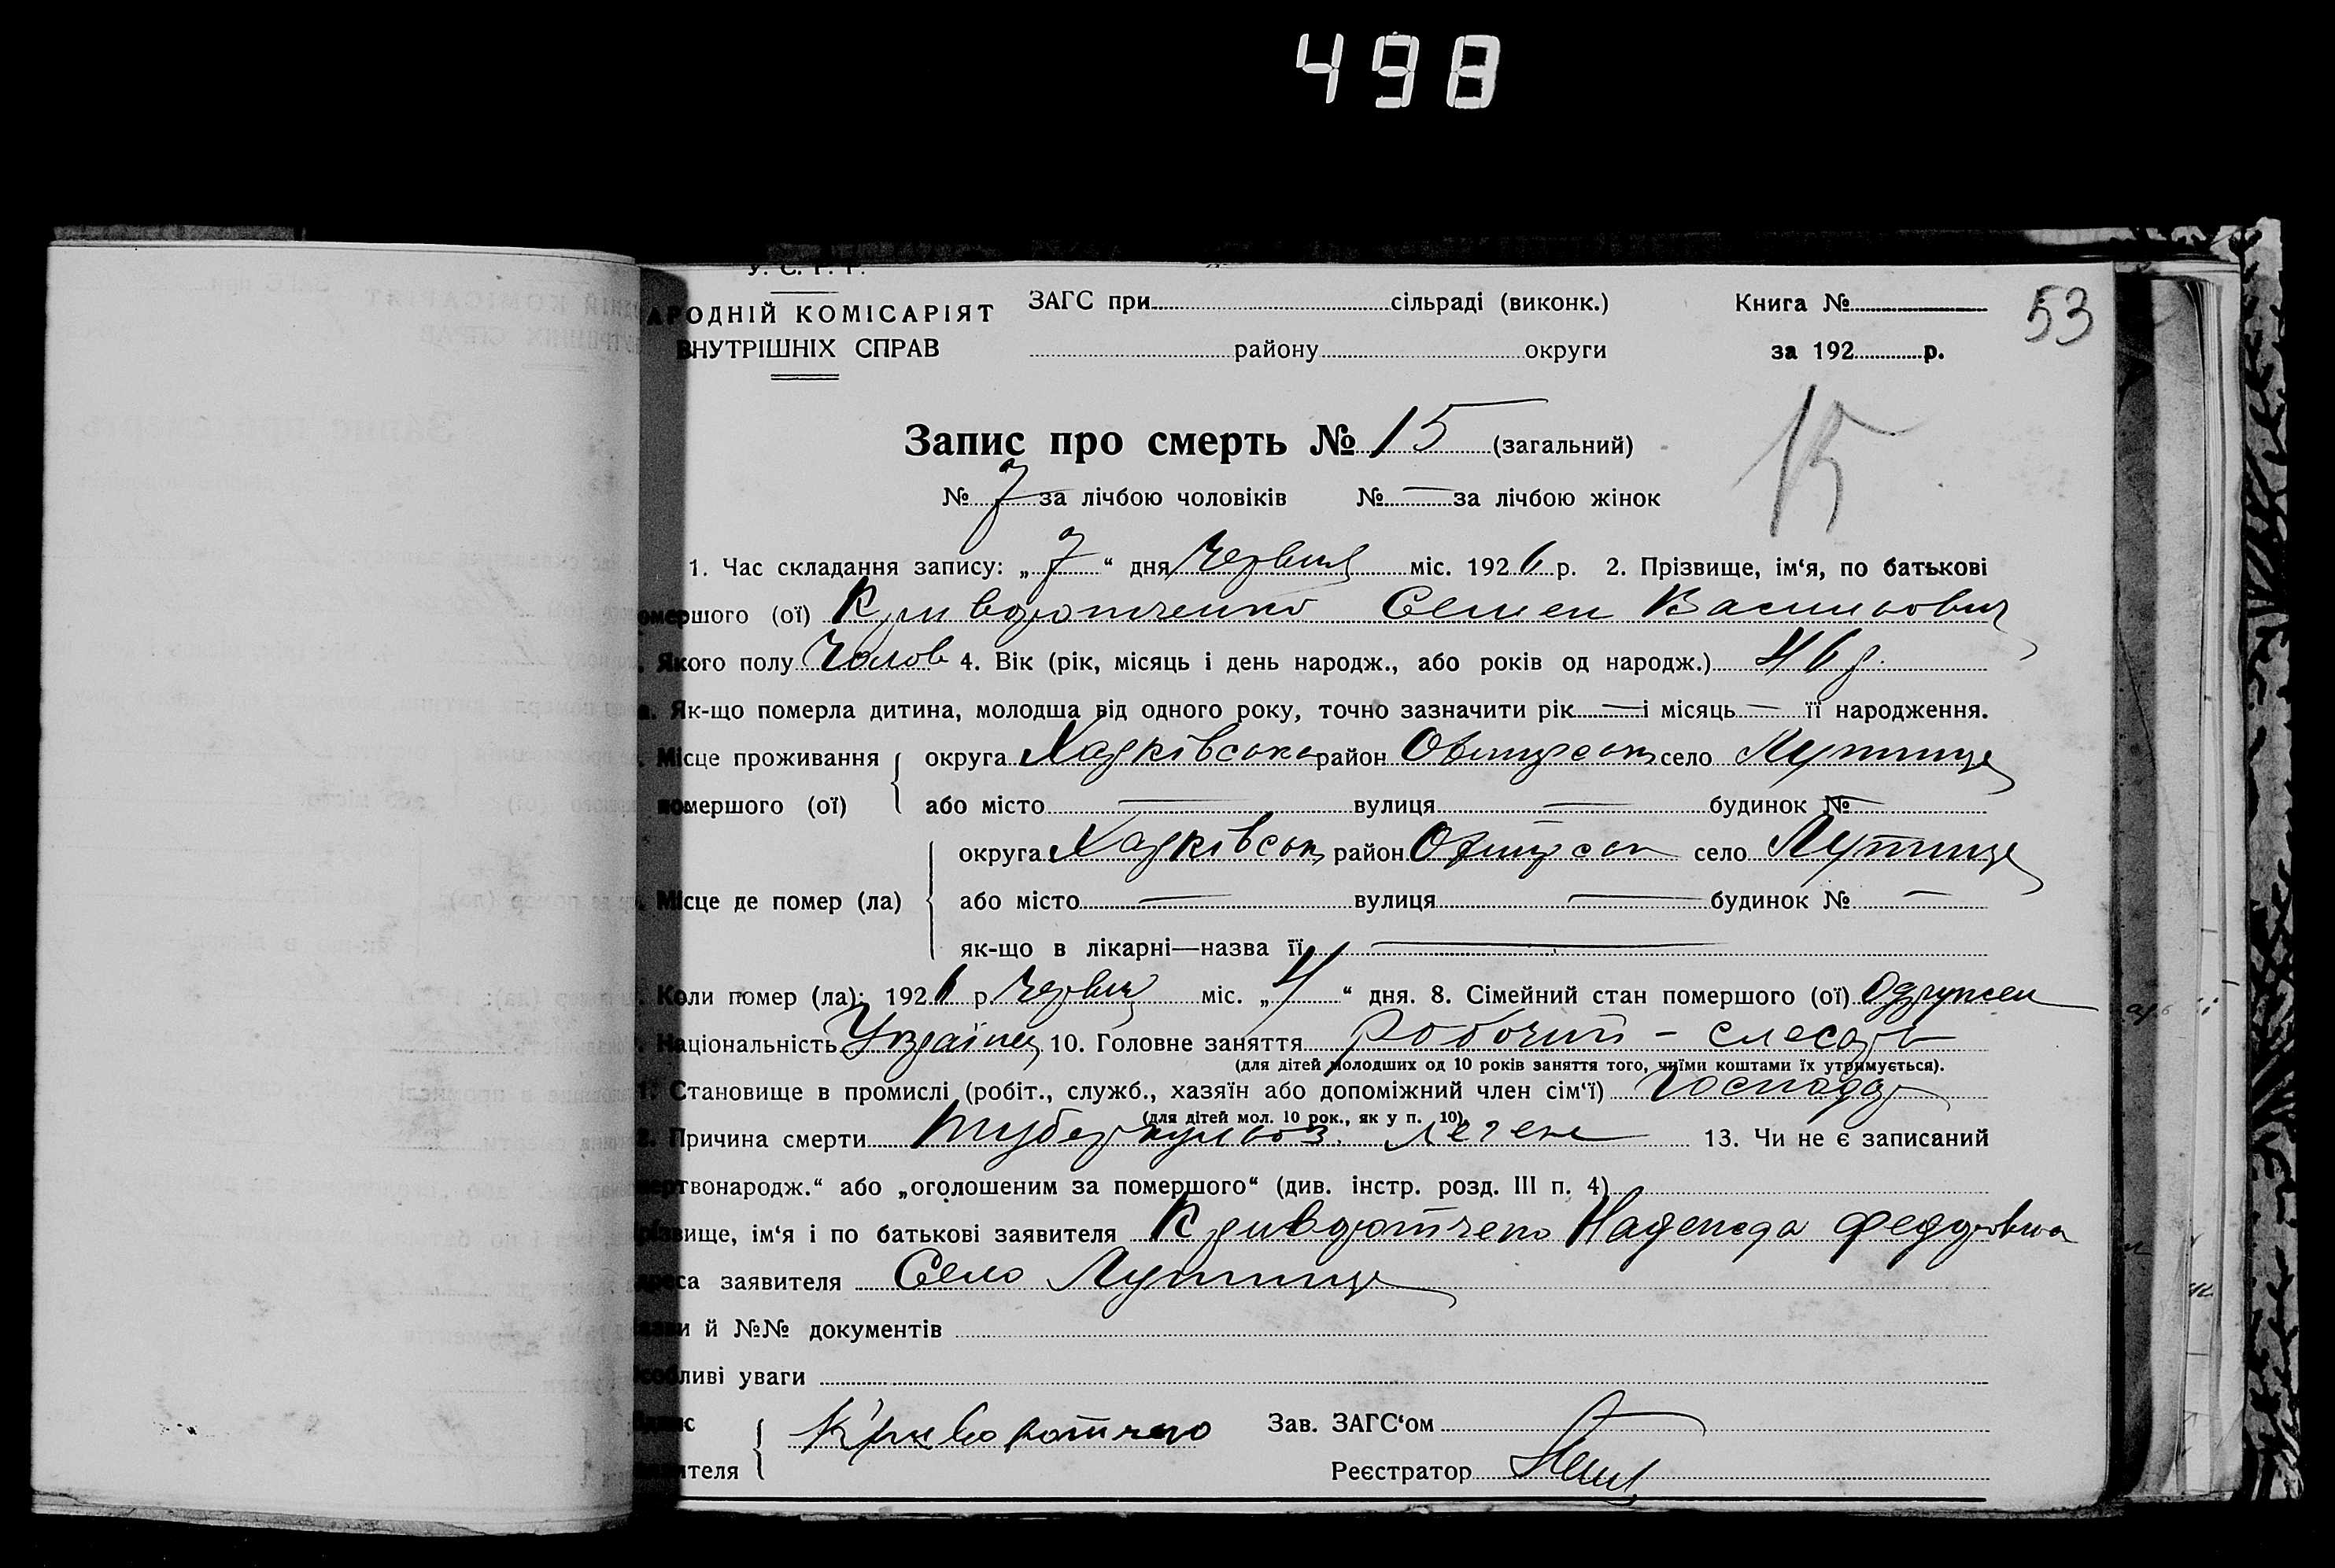 498
У. С. Р. Р.
АРОДНІЙ КОМІСАРІЯТ
ВНУТРІШНІХ СПРАВ
ЗАГС при сільраді (виконк.)
району округи
Книга №
за 192 р.
53
Запис про смерть № 15 (загальний)
15
№ 7 за лічбою чоловіків № — за лічбою жінок
1. Час складання запису: „ 7 “ дня Червня міс. 1926 р. 2. Прізвище, ім‘я, по батькові
омершого (ої) Криворотченко Семен Васильович
Якого полу Чолов 4. Вік (рік, місяць і день народж., або років од народж.) 46 р.
а. Як-що померла дитина, молодша від одного року, точно зазначити рік — і місяць — її народження.
Місце проживання округа Харківська район село
помершого (ої) або місто — вулиця — будинок № —
округа Харківськ район село
Місце де помер (ла) або місто — вулиця — будинок № —
як-що в лікарні—назва її —
Коли помер (ла): 1926 р. Червня міс. „ 4 “ дня. 8. Сімейний стан помершого (ої) Одружен
Національність Українец 10. Головне заняття робочий - слесарь
(для дітей молодших од 10 років заняття того, чиїми коштами їх утримується).
1. Становище в промислі (робіт., служб., хазяїн або допоміжний член сім‘ї) господар
(для дітей мол. 10 рок., як у п. 10)
2. Причина смерти туберкульоз легень 13. Чи не є записаний
ертвонародж.“ або „оголошеним за помершого“ (див. інстр. розд. III п. 4)
ізвище, ім‘я і по батькові заявителя Надежда Федоровна
реса заявителя Село
и й №№ документів
собливі уваги
с
ителя
Зав. ЗАГС‘ом
Реєстратор